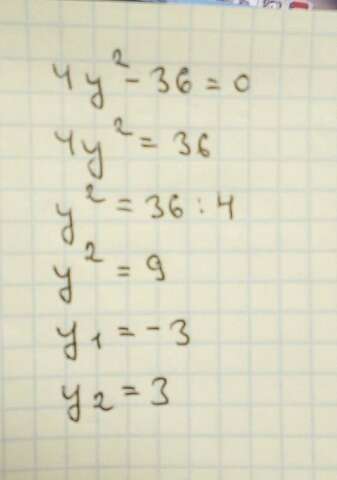 4y² - 36 = 0
4y² = 36
y² = 36 : 4
y² = 9
y₁ = -3
y₂ = 3